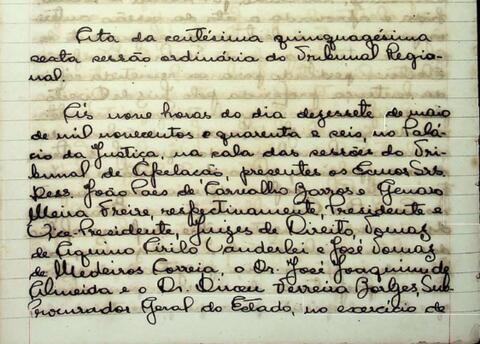 Ata da centésima quinquagésima
sexta sessão ordinária do Tribunal Regio-
nal.
Ás nove horas do dia dezessete de maio
de mil novecentos e quarenta e seis, no Palá-
cio da Justiça, na sala das sessões do Tri-
bunal de Apelação, presentes os Exmos Srs.
Dess. João Paes de Carvalho Barros e Genaro
Meira Freire, respectivamente, Presidente e
Vice-Presidente, Juizes de Direito, Tomaz
de Aquino Cirilo Vanderlei e José Tomaz
de Medeiros Correia, o Dr. José Joaquim de
Almeida e o Dr. Dirceu Ferreira Borges, Sub-
Procurador Geral do Estado, no exercício de